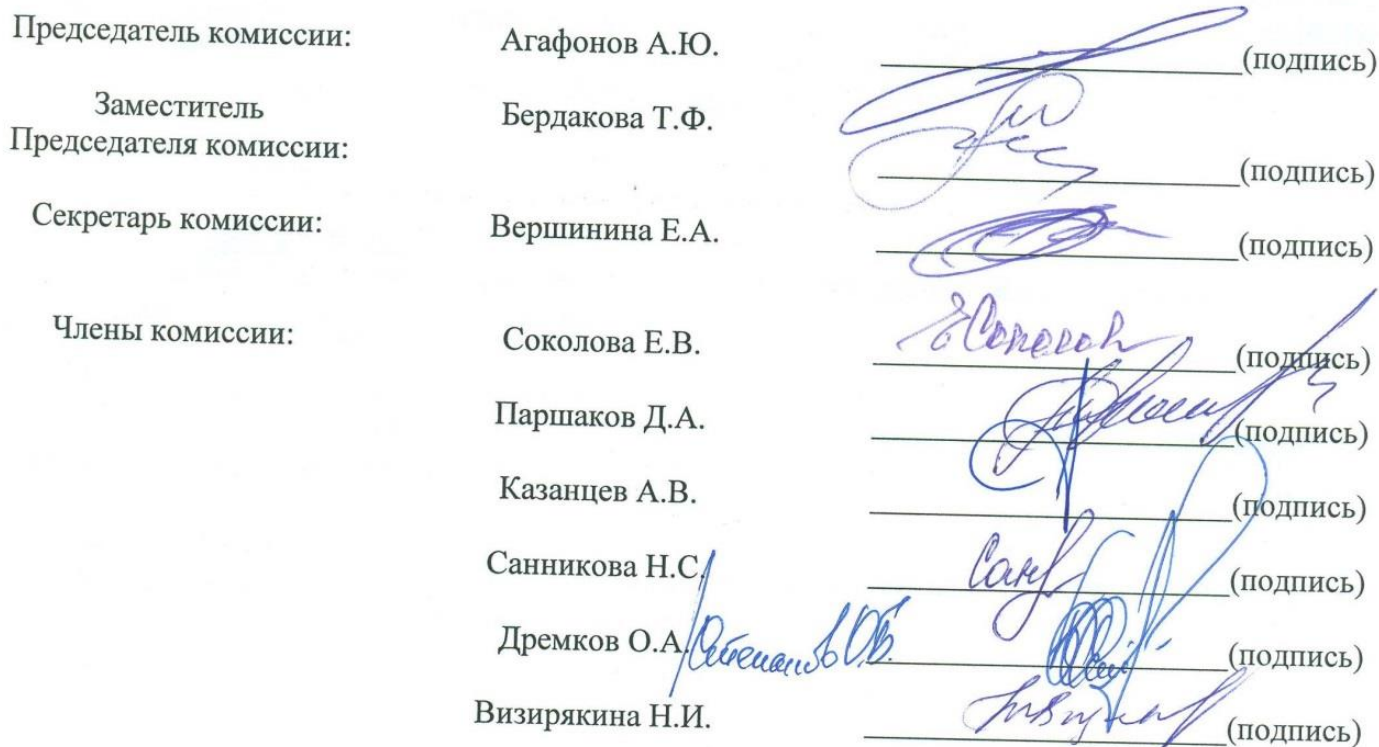 Председатель комиссии: Агафонов А.Ю. (подпись)
Заместитель
Председателя комиссии: Бердакова Т.Ф. (подпись)
Секретарь комиссии: Вершинина Е.А. (подпись)
Члены комиссии: Соколова Е.В. (подпись)
Паршаков Д.А. (подпись)
Казанцев А.В. (подпись)
Санникова Н.С. (подпись)
Дремков О.А. (подпись)
Визирякина Н.И. (подпись)